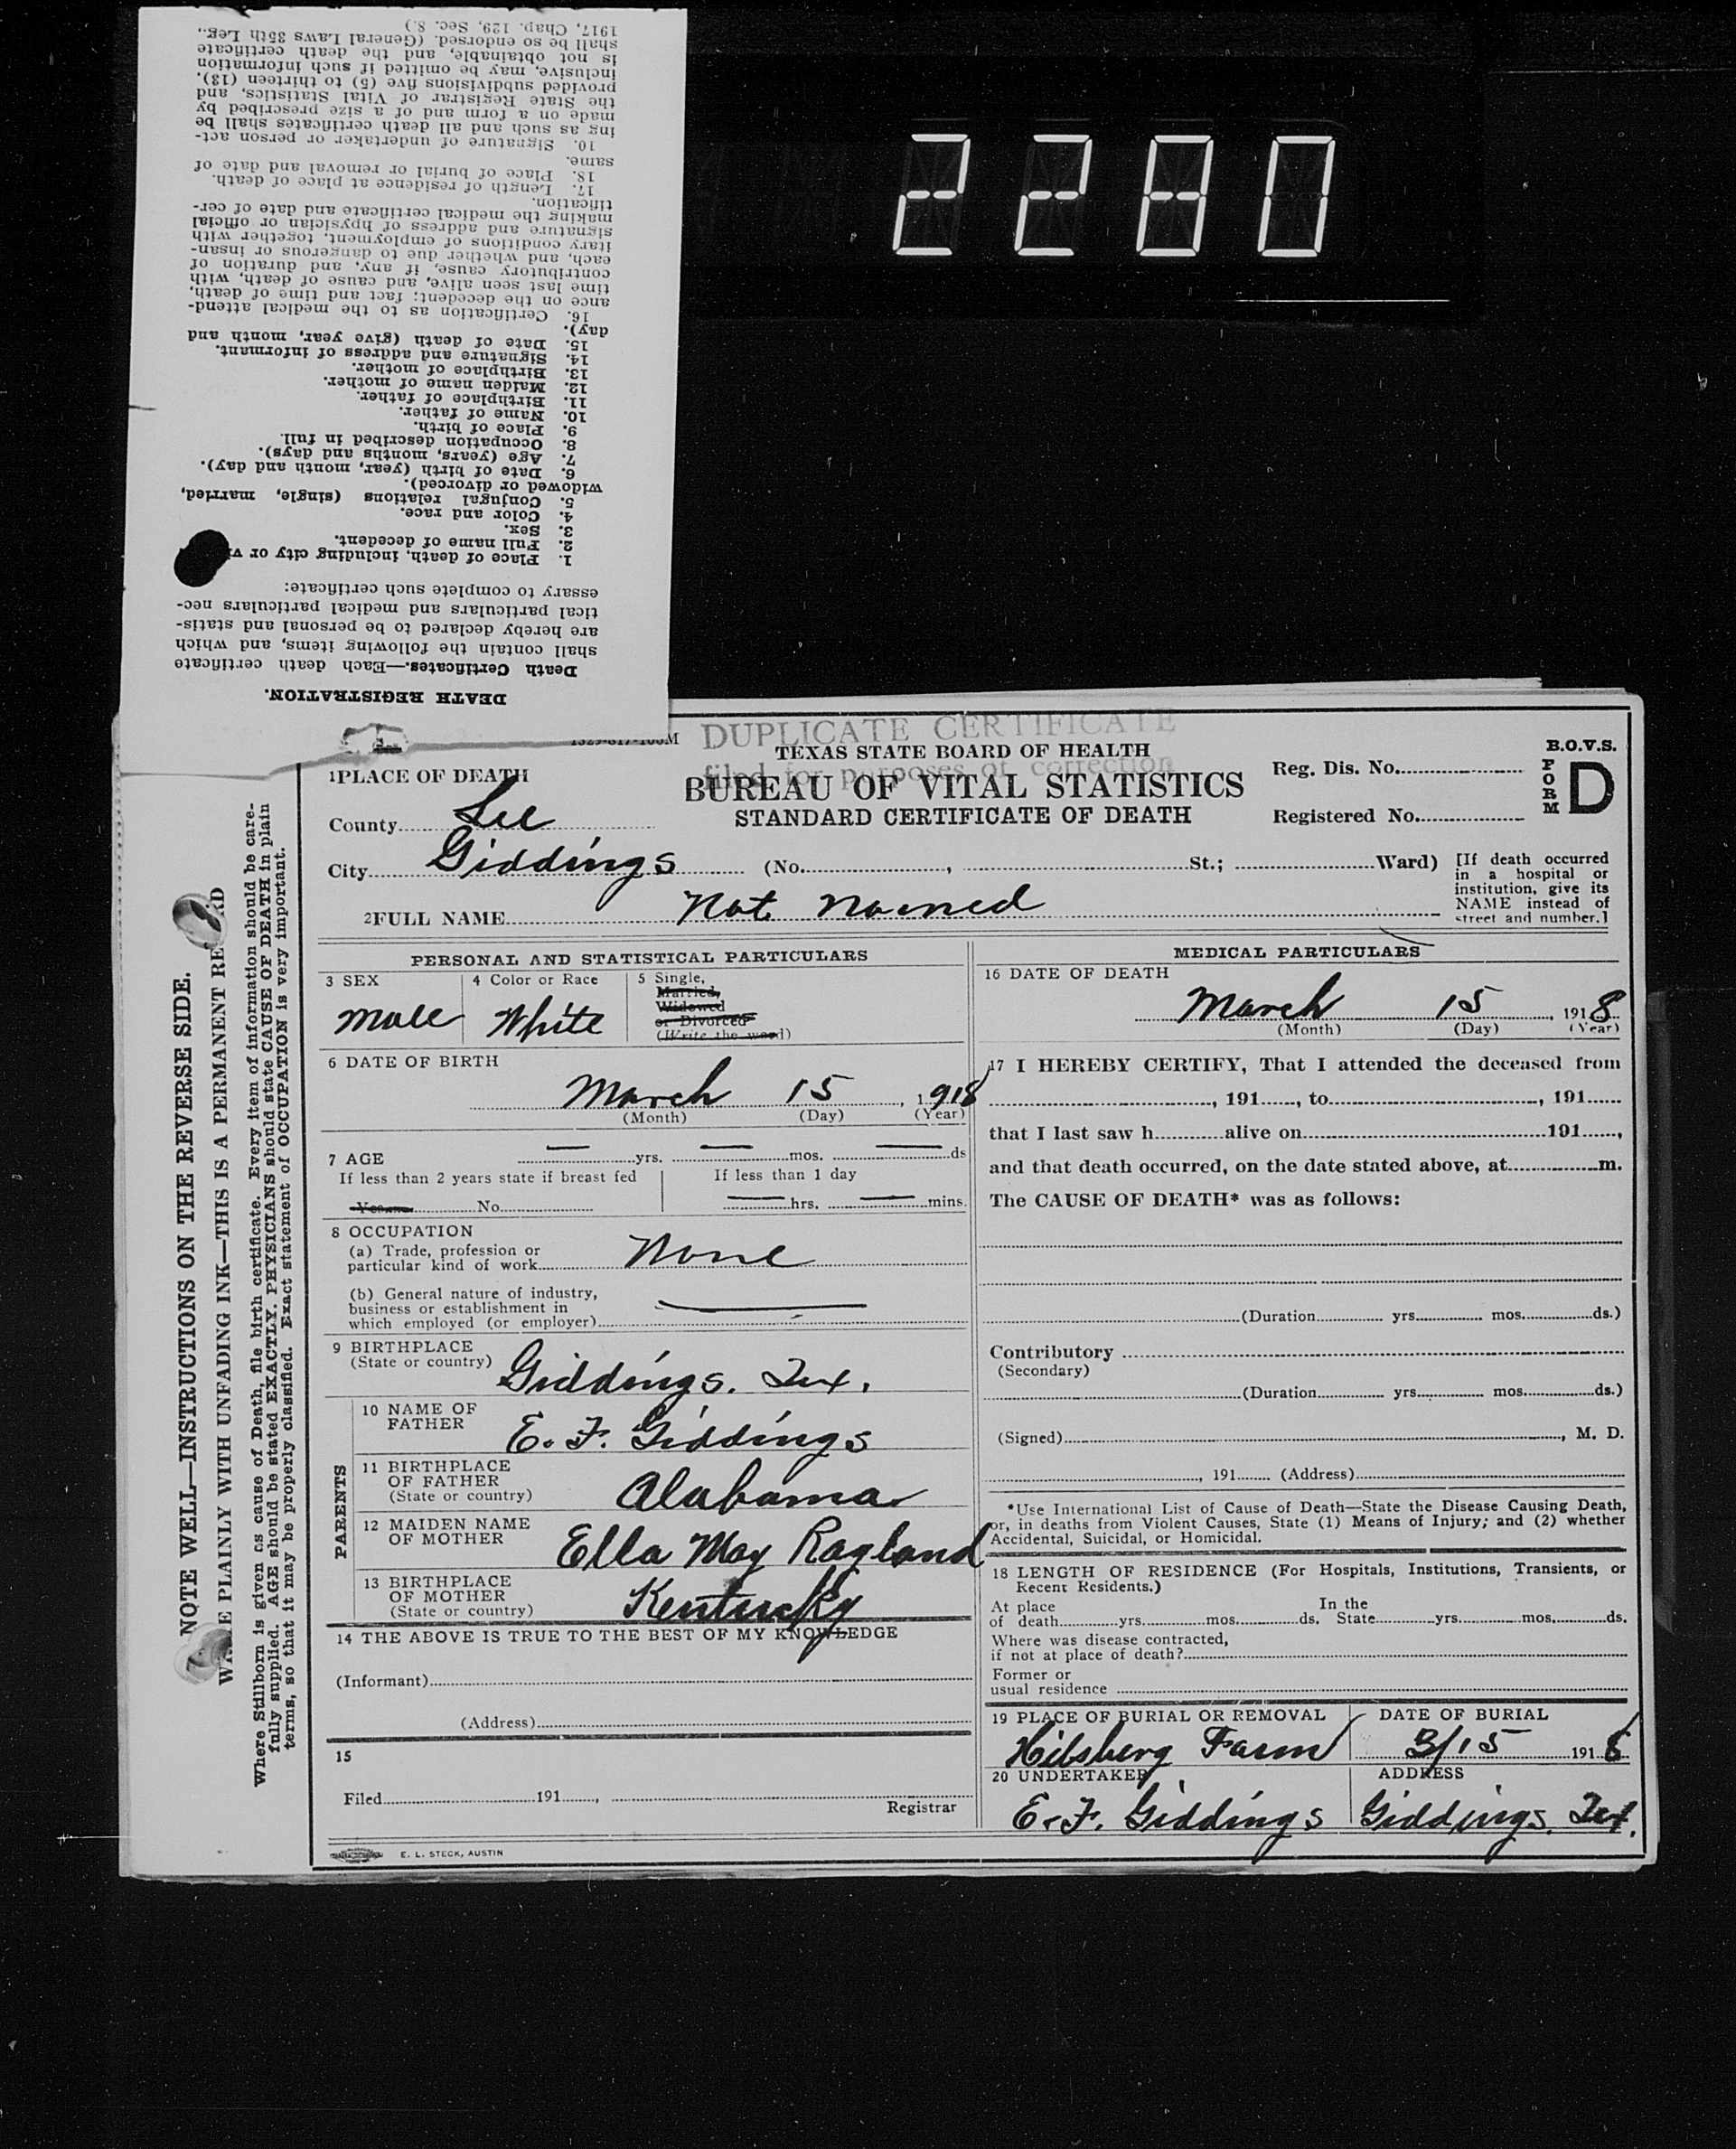 2280
1917, Chap. 129, Sec. 8.)
shall be so endorsed. (General Laws 35th Leg.,
is not obtainable, and the death certificate
inclusive, may be omitted if such information
provided subdivisions five (5) to thirteen (13),
the State Registrar of Vital Statistics, and
made on a form and of a size prescribed by
ing as such and all death certificates shall be
10. Signature of undertaker or person act-
same.
18. Place of burial or removal and date of
17. Length of residence at place of death.
tification.
making the medical certificate and date of cer-
signature and address of hpysician or official
itary conditions of employment, together with
each, and whether due to dangerous or insan-
contributory cause, if any, and duration of
time last seen alive, and cause of death, with
ance on the decedent; fact and time of death,
16. Certification as to the medical attend-
day).
15. Date of death (give year, month and
14. Signature and address of informant.
13. Birthplace of mother.
12. Maiden name of mother.
11. Birthplace of father.
10. Name of father.
9. Place of birth.
8. Occupation described in full.
7. Age (years, months and days).
6. Date of birth (year, month and day).
widowed or divorced).
5. Conjugal relations (single, married,
4. Color and race.
3. Sex.
2. Full name of decedent.
1. Place of death, including city or
essary to complete such certificate:
tical particulars and medical particulars nec-
are hereby declared to be personal and statis-
shall contain the following items, and which
Death Certificates.—Each death certificate
DEATH REGISTRATION.
DUPLICATE CERTIFICATE
filed for purposes of correction
TEXAS STATE BOARD OF HEALTH
BUREAU OF VITAL STATISTICS
STANDARD CERTIFICATE OF DEATH
B.O.V.S.
FORM D
Reg. Dis. No.
Registered No.
1 PLACE OF DEATH
County Lee
City Giddings (No. , St.; Ward)
[If death occurred
in a hospital or
institution, give its
NAME instead of
street and number.]
2 FULL NAME Not Named
NOTE WELL—INSTRUCTIONS ON THE REVERSE SIDE.
PLAINLY WITH UNFADING INK—THIS IS A PERMANENT
Where Stillborn is given as cause of Death, file birth certificate. Every item of information should be care-
fully supplied. AGE should be stated EXACTLY. PHYSICIANS should state CAUSE OF DEATH in plain
terms, so that it may be properly classified. Exact statement of OCCUPATION is very important.
PERSONAL AND STATISTICAL PARTICULARS
3 SEX
Male
4 Color or Race
White
5 Single,
Married,
Widowed
or Divorced
(Write the word)
6 DATE OF BIRTH
March 15, 1918
(Month) (Day) (Year)
7 AGE — yrs. — mos. — ds
If less than 2 years state if breast fed
Yes No
If less than 1 day
— hrs. — mins.
8 OCCUPATION
(a) Trade, profession or
particular kind of work None
(b) General nature of industry,
business or establishment in
which employed (or employer) —
9 BIRTHPLACE
(State or country) Giddings, Tex.
PARENTS
10 NAME OF
FATHER E. F. Giddings
11 BIRTHPLACE
OF FATHER
(State or country) Alabama
12 MAIDEN NAME
OF MOTHER Ella May Ragland
13 BIRTHPLACE
OF MOTHER
(State or country) Kentucky
14 THE ABOVE IS TRUE TO THE BEST OF MY KNOWLEDGE
(Informant)
(Address)
15
Filed 191 ,
Registrar
MEDICAL PARTICULARS
16 DATE OF DEATH
March 15, 1918
(Month) (Day) (Year)
17 I HEREBY CERTIFY, That I attended the deceased from
, 191 , to , 191
that I last saw h alive on 191 ,
and that death occurred, on the date stated above, at m.
The CAUSE OF DEATH* was as follows:
(Duration yrs. mos. ds.)
Contributory
(Secondary)
(Duration yrs. mos. ds.)
(Signed) , M. D.
, 191 (Address)
*Use International List of Cause of Death—State the Disease Causing Death,
or, in deaths from Violent Causes, State (1) Means of Injury; and (2) whether
Accidental, Suicidal, or Homicidal.
18 LENGTH OF RESIDENCE (For Hospitals, Institutions, Transients, or
Recent Residents.)
At place In the
of death yrs. mos. ds. State yrs. mos. ds.
Where was disease contracted,
if not at place of death?
Former or
usual residence
19 PLACE OF BURIAL OR REMOVAL
Hilsberg Farm
DATE OF BURIAL
3/15 1918
20 UNDERTAKER
E. F. Giddings
ADDRESS
Giddings, Tex.
E. L. STECK, AUSTIN